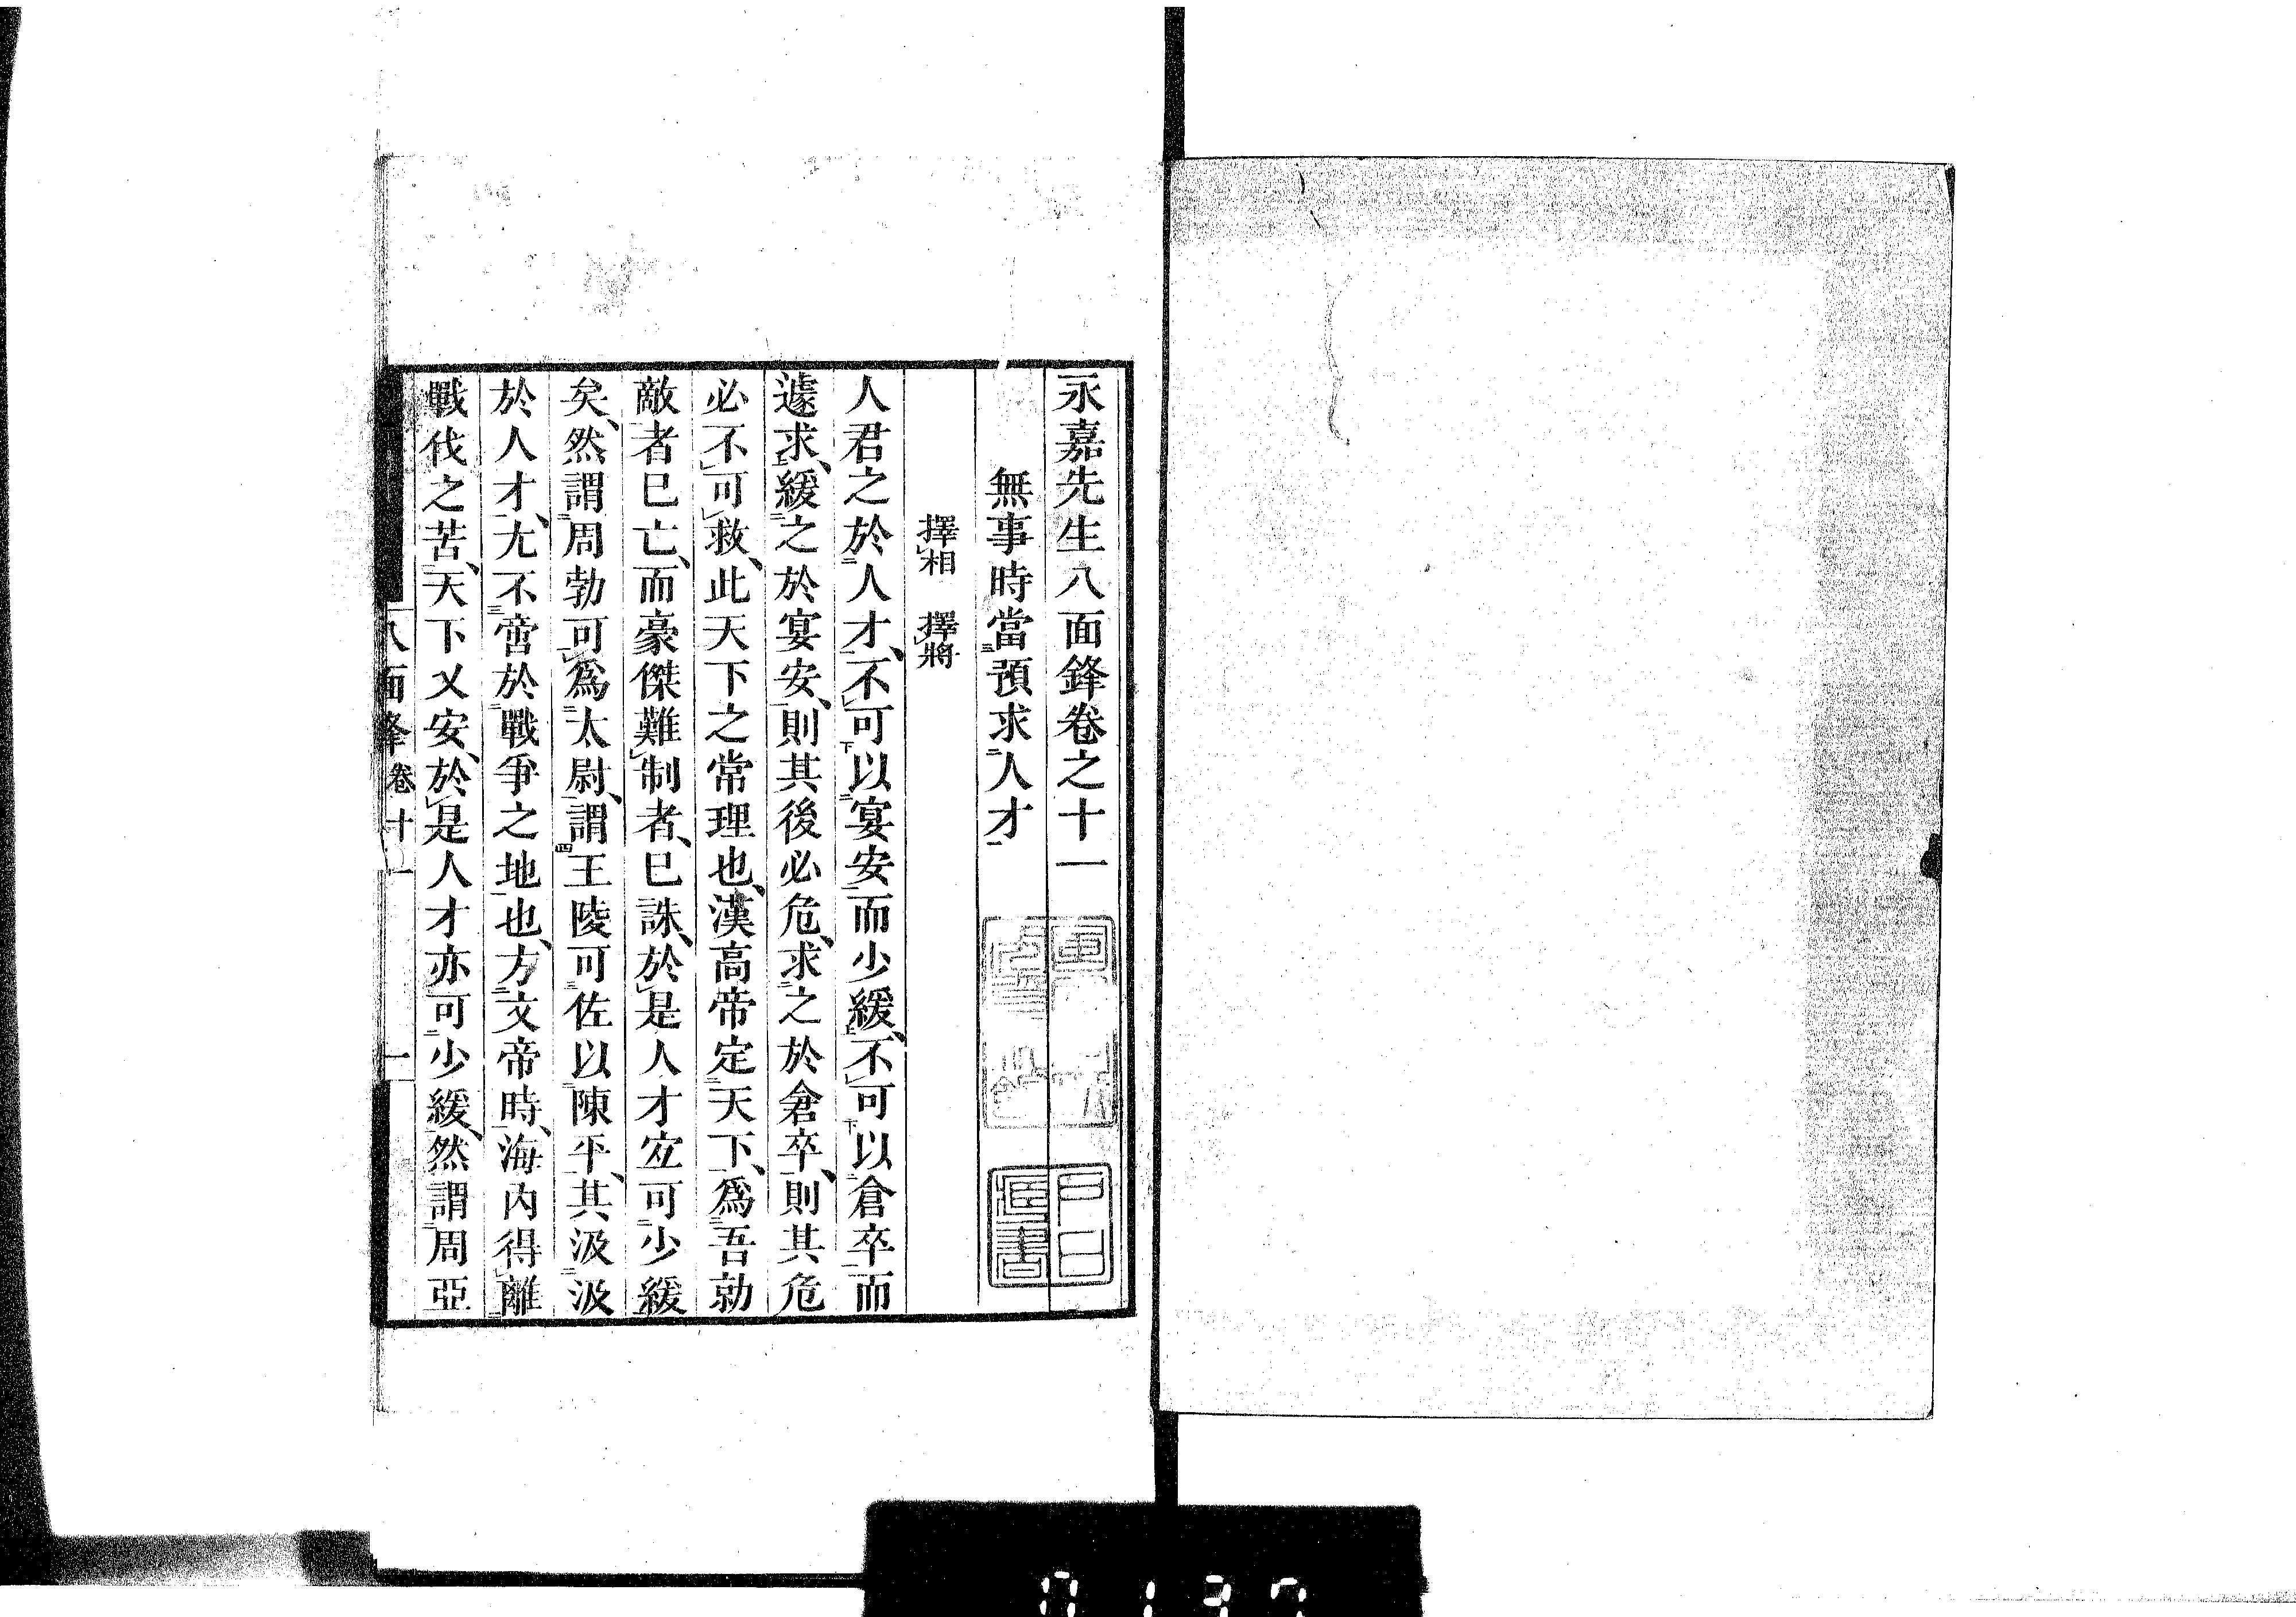 永嘉先生八面鋒卷之十一
無事時當預求人才
擇相　擇將
人君之於人才、不可以宴安而少緩、不可以倉卒而
遽求、緩之於宴安、則其後必危、求之於倉卒、則其危
必不可救、此天下之常理也、漢高帝定天下、爲吾勍
敵者已亡、而豪傑難制者、已誅、於是人才宐可少緩
矣、然謂周勃可爲太尉、謂王陵可佐以陳平、其汲汲
於人才、尢不啻於戰爭之地也、方文帝時、海内得離
戰伐之苦、天下乂安、於是人才亦可少緩、然謂周亞
八面鋒卷十一
一
0137